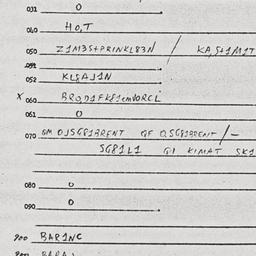 031 0
040 HO,T
050 Z1M3S+PRINKL83N / KA,S+1M1T
051
052 KL8AJ1N
X 060
061 0
070 GM OJSG81BRENT GF QSG81BRENT /-
SG81L1 G1 KIMAT SK1
080 0
090 0
900 BAR1NC